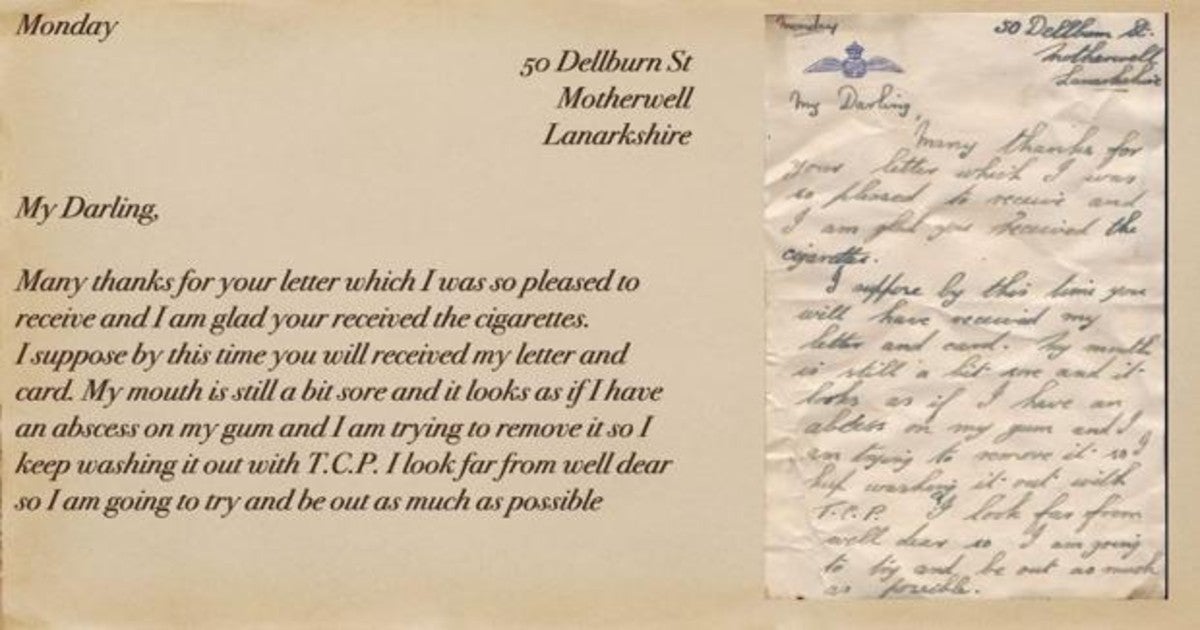 Monday
50 Dellburn St
Motherwell
Lanarkshire
My Darling,
Many thanks for your letter which I was so pleased to
receive and I am glad your received the cigarettes.
I suppose by this time you will received my letter and
card. My mouth is still a bit sore and it looks as if I have
an abscess on my gum and I am trying to remove it so I
keep washing it out with T.C.P. I look far from well dear
so I am going to try and be out as much as possible
Monday
50 Dellburn St.
Motherwell
Lanarkshire
My Darling,
Many thanks for
your letter which I was
so pleased to receive and
I am glad you received the
cigarettes.
I suppose by this time you
will have received my
letter and card. My mouth
is still a bit sore and it
looks as if I have an
abcess on my gum and I
am trying to remove it so I
keep washing it out with
T.C.P. I look far from
well dear so I am going
to try and be out as much
as possible.